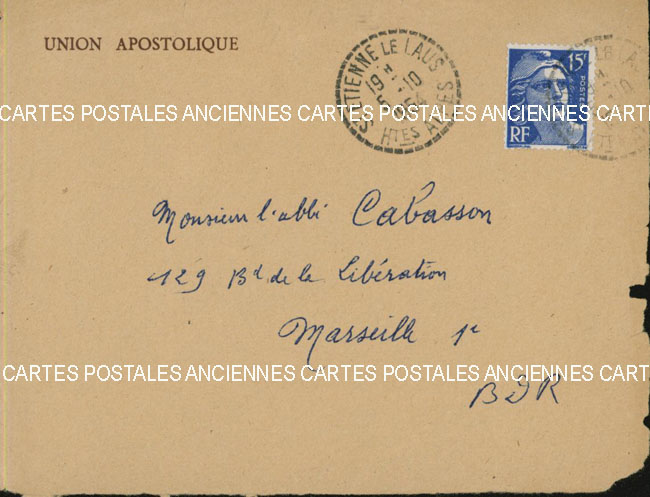 UNION APOSTOLIQUE
ST ETIENNE LE LAUS
19H
10
HTES ALPES
15F
POSTES
RF
CARTES POSTALES ANCIENNES CARTES POSTALES ANCIENNES CARTES
Monsieur l'abbé Cabasson
129 Bd de la Libération
Marseille 1e
CARTES POSTALES ANCIENNES CARTES POSTALES ANCIENNES CART
BDR